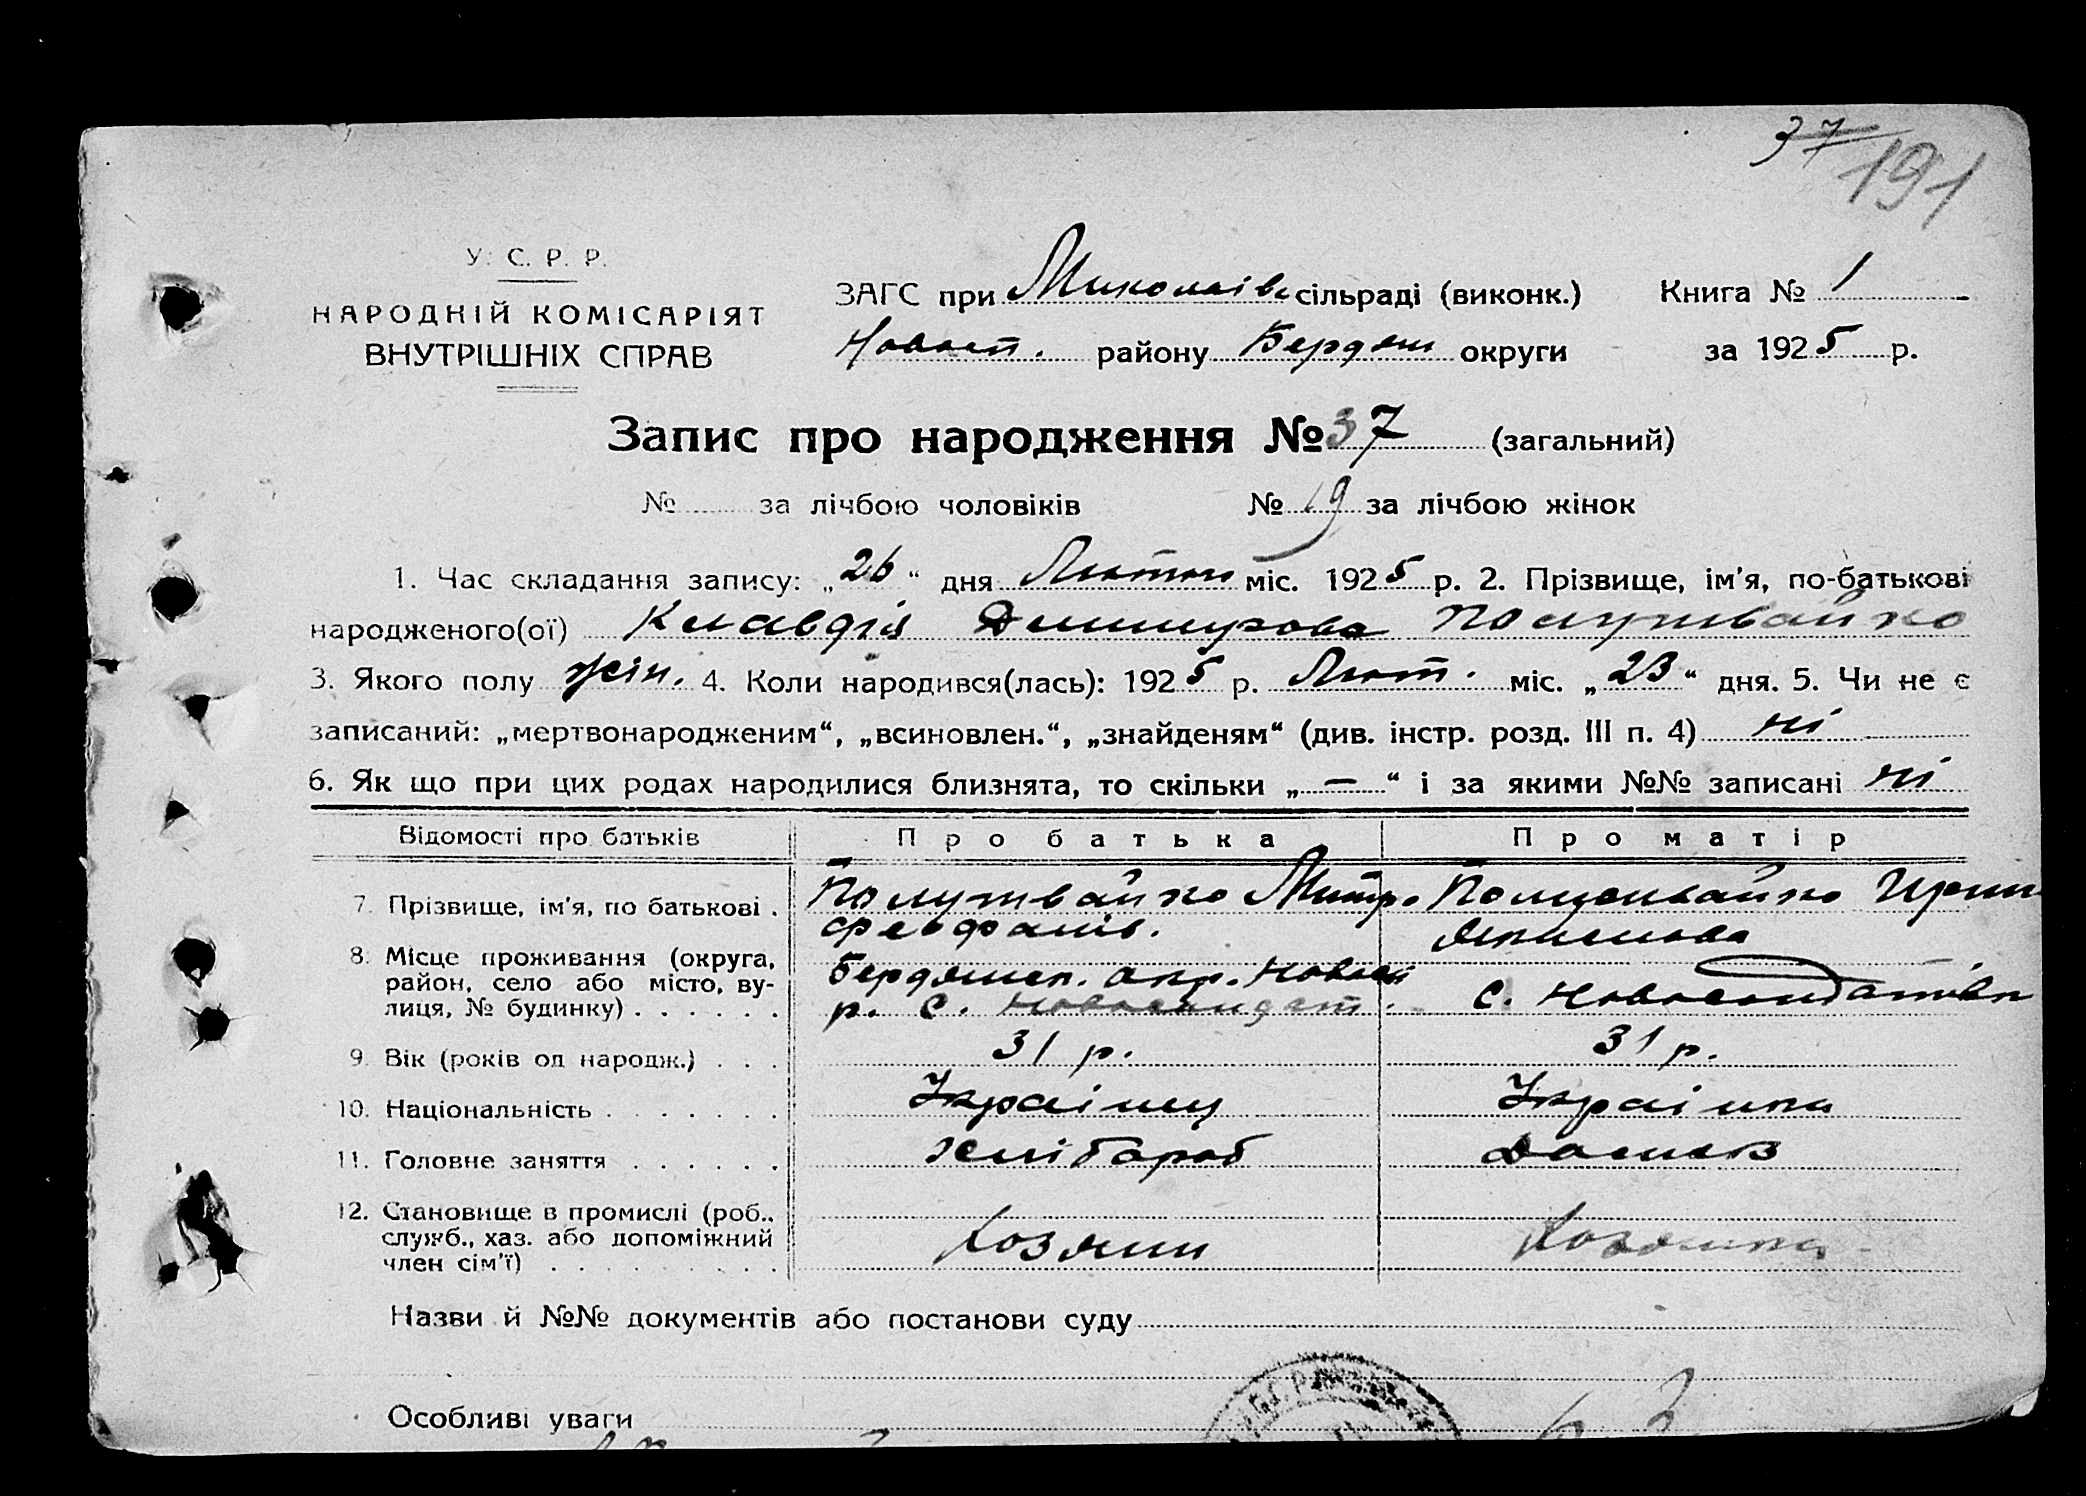 37
191
У. С. Р. Р.
НАРОДНІЙ КОМІСАРІЯТ
ВНУТРІШНІХ СПРАВ
ЗАГС при Миколаівс сільраді (виконк.) Книга № 1
району Бердян округи за 1925 р.
Запис про народження № 37 (загальний)
№ за лічбою чоловіків № 19 за лічбою жінок
1. Час складання запису: „26“ дня Лютого міс. 1925 р. 2. Прізвище, ім'я, по-батькові
народженого(ої) Клавдія Димитрова Полуживайко
3. Якого полу жін. 4. Коли народився(лась): 1925 р. Лют. міс. „23“ дня. 5. Чи не є
записаний: „мертвонародженим“, „всиновлен.“, „знайденям“ (див. інстр. розд. III п. 4) ні
6. Як що при цих родах народилися близнята, то скільки „—“ і за якими №№ записані ні
Відомості про батьків Про батька Про матір
7. Прізвище, ім'я, по батькові . Полуживайко Митр. Полуживайко Ирин
Феофанів.
8. Місце проживання (округа, район, село або місто, вулиця, № будинку) . . . . . . Бердянск. окр.
р. С. с.
9. Вік (років од народж.) . . . 31 р. 31 р.
10. Національність . . . . . . . Украінец Украінка
11. Головне заняття . . . . . . Хлібороб
12. Становище в промислі (роб.,
служб., хаз. або допоміжний
член сім'ї) . . . . . . . . . Хозяин Хозяинка
Назви й №№ документів або постанови суду
Особливі уваги